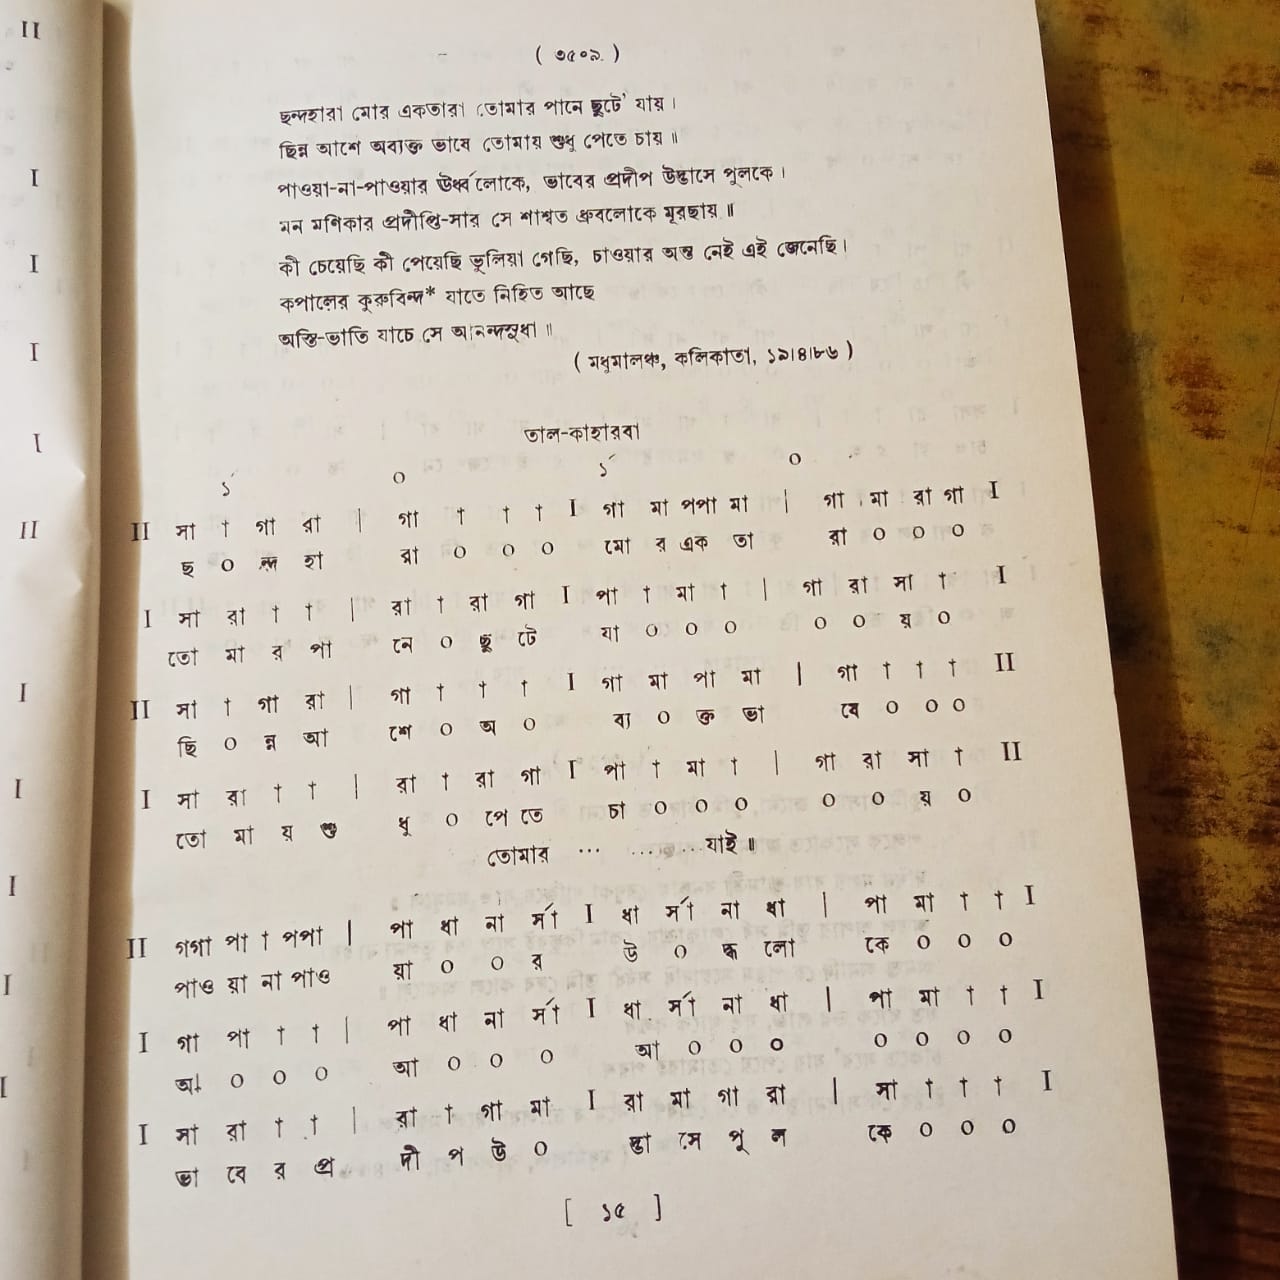 ( ৩৫০৯ )
ছন্দহারা মোর একতারা তোমার পানে ছুটে' যায় ।
ছিন্ন আশে অব্যক্ত ভাষে তোমায় শুধু পেতে চায় ॥
পাওয়া-না-পাওয়ার উর্ধ্বলোকে, ভাবের প্রদীপ উদ্ভাসে পুলকে ।
মন মণিকার প্রদীপ্তি-সার সে শাশ্বত ধ্রুবলোকে মূরছায় ॥
কী চেয়েছি কী পেয়েছি ভুলিয়া গেছি, চাওয়ার অন্ত নেই এই জেনেছি ।
কপালের কুরুবিন্দ* যাতে নিহিত আছে
অস্তি-ভাতি যাচে সে আনন্দসুধা ॥
( মধুমালঞ্চ, কলিকাতা, ১৯।৪।৮৬ )
তাল-কাহারবা
১´ ০ ১´ ০
II সা † গা রা | গা † † † I গা মা পপা মা | গা মা রা গা I
ছ ০ ন্দ হা রা ০ ০ ০ মো র এক তা রা ০ ০ ০
I সা রা † † | রা † রা গা I পা † মা † | গা রা সা † I
তো মা র পা নে ০ ছু টে যা ০ ০ ০ ০ ০ য় ০
II সা † গা রা | গা † † † I গা মা পা মা | গা † † † II
ছি ০ ন্ন আ শে ০ অ ০ ব্য ০ ক্ত ভা ষে ০ ০ ০
I সা রা † † | রা † রা গা I পা † মা † | গা রা সা † II
তো মা য় শু ধু ০ পে তে চা ০ ০ ০ ০ ০ য় ০
তোমার ... ... ... যাই ॥
II গগা পা † পপা | পা ধা না র্সা I ধা র্সা না ধা | পা মা † † I
পাও য়া না পাও য়া ০ ০ র উ ০ র্দ্ধ লো কে ০ ০ ০
I গা পা † † | পা ধা না র্সা I ধা র্সা না ধা | পা মা † † I
আ ০ ০ ০ আ ০ ০ ০ আ ০ ০ ০ ০ ০ ০ ০
I সা রা † † | রা † গা মা I রা মা গা রা | সা † † † I
ভা বে র প্র দী প উ ০ দ্ভা সে পু ল কে ০ ০ ০
[ ১৫ ]